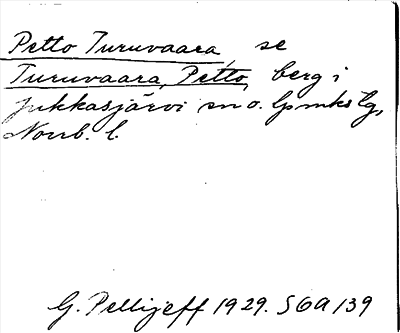 Petto Turuvaara, se
Turuvaara, Petto, berg i
Jukkasjärvi sn o. lpmks tg,
Norrb. l.
G. Pellijeff 1929. SOA 139